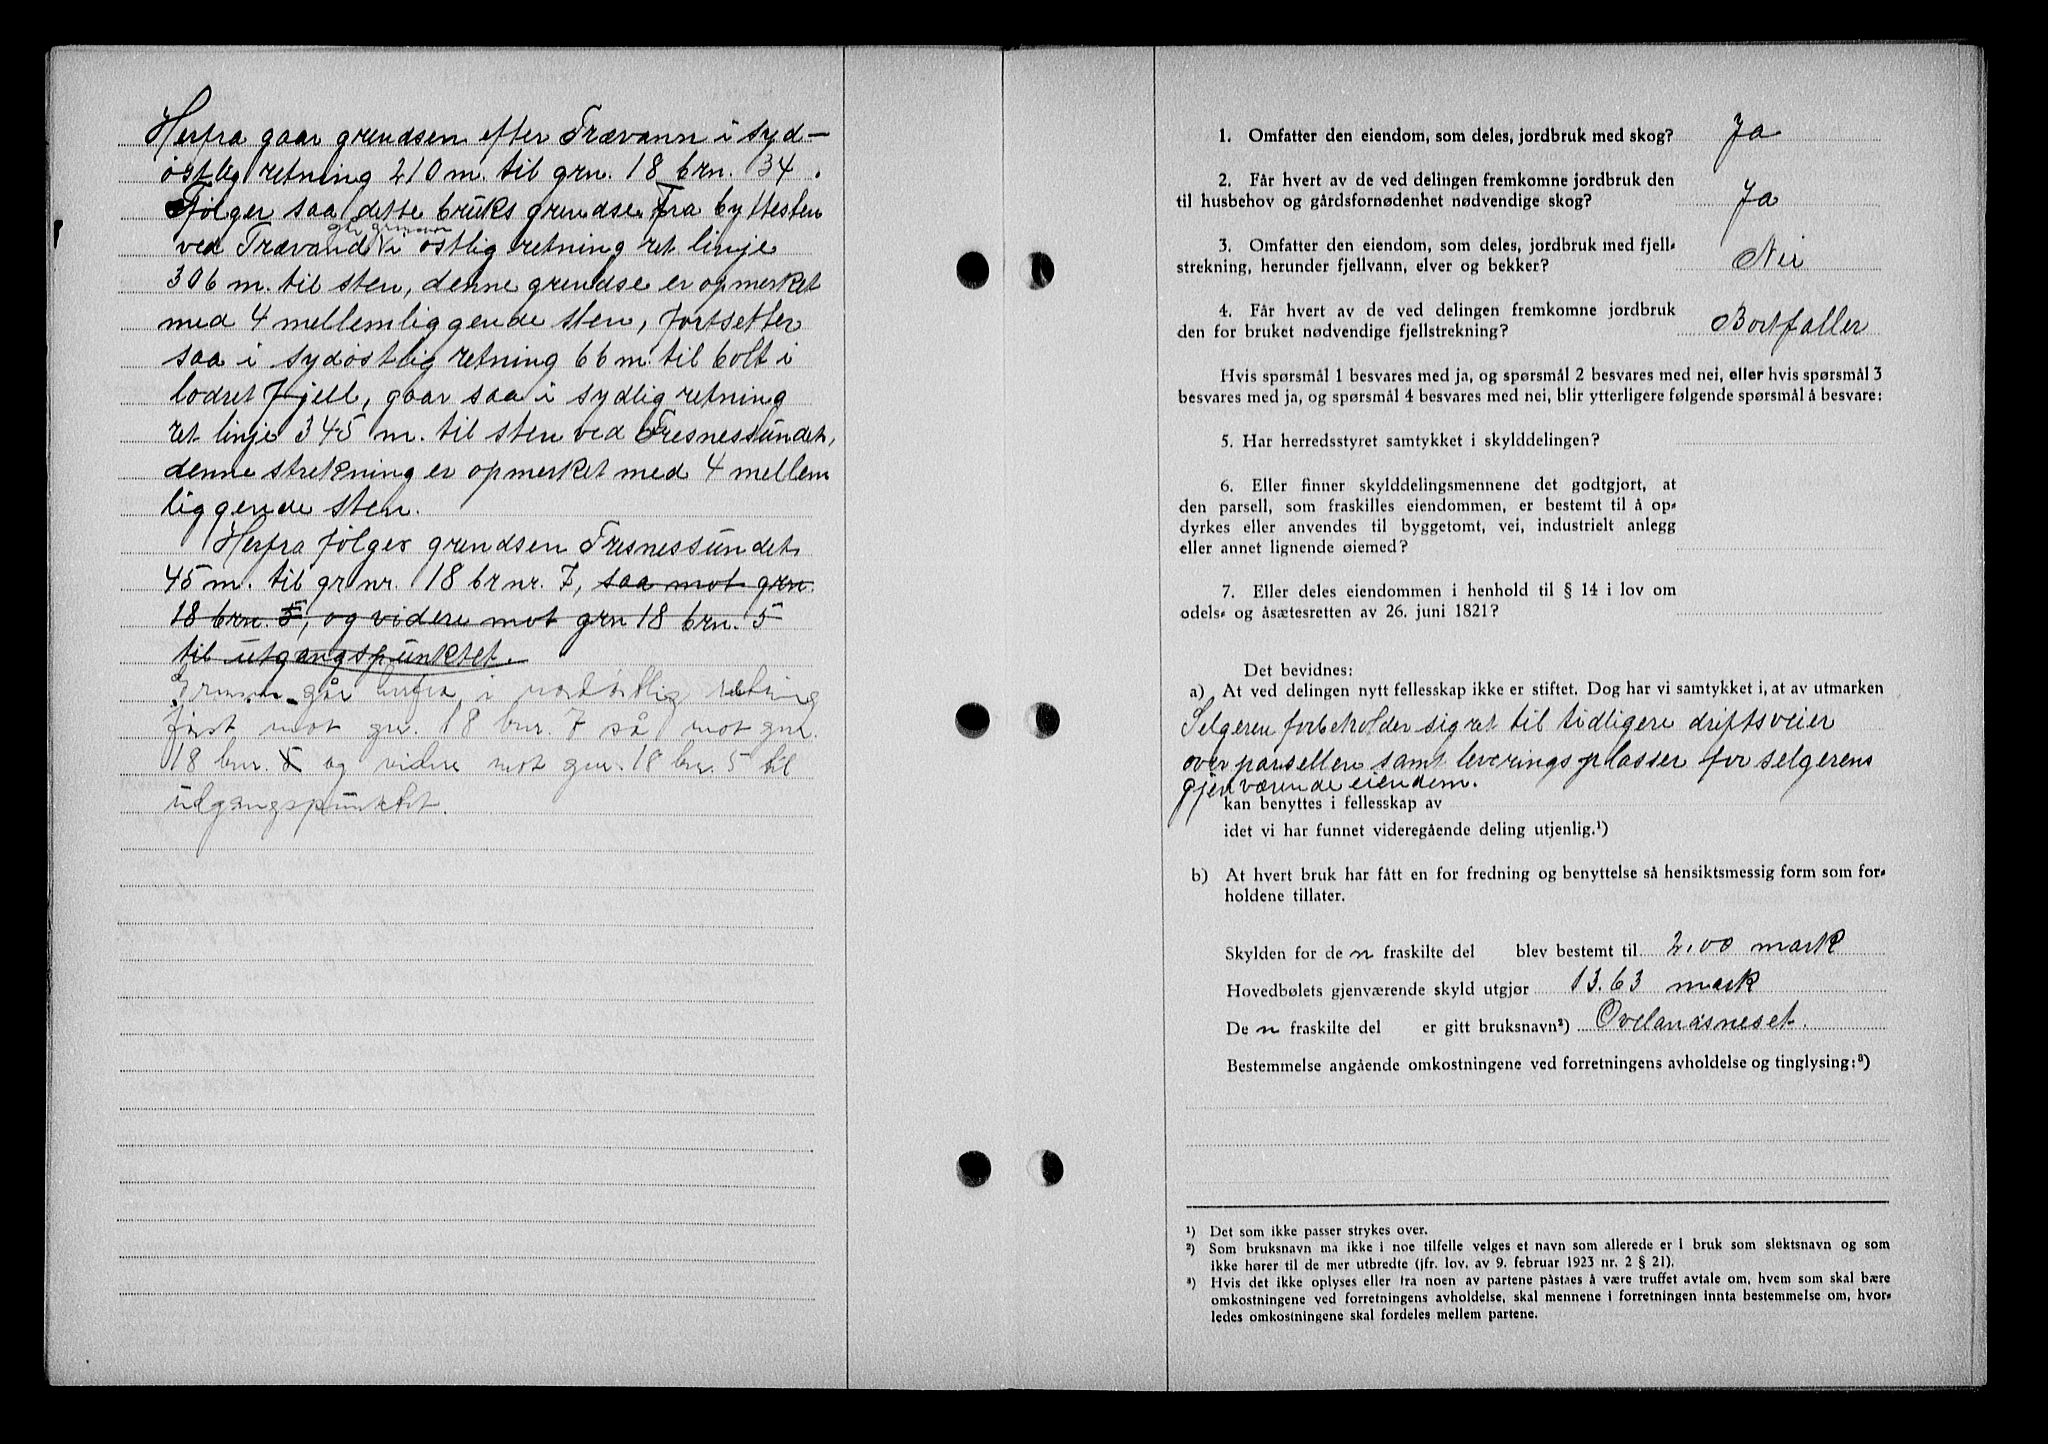 Herfra gaar grendsen efter Trævann i syd-
østlig retning 210 m. til grn. 18 brn. 34.
Følger saa dette bruks grendse fra byttesten
går grensen
ved Trævand i østlig retning ret linje
306 m. til sten, denne grendse er opmerket
med 4 mellemliggende sten, fortsetter
saa i sydøstlig retning 66 m. til bolt i
lodret Fjell, gaar saa i sydlig retning
ret linje 345 m. til sten ved Fresnessundet,
denne strekning er opmerket med 4 mellem
liggende sten.
Herfra følger grendsen Fresnessundet
45 m. til grnr. 18 brnr. 7, saa mot grn.
18 brn. 5, og videre mot grn 18 brn. 5
til utgangspunktet.
Grensen går herfra i nordøstlig retning
først mot gnr. 18 bnr. 7 så mot gnr.
18 bnr. 5 og videre mot gnr. 18 bnr. 5 til
utgangspunktet.
1. Omfatter den eiendom, som deles, jordbruk med skog? Ja
2. Får hvert av de ved delingen fremkomne jordbruk den
til husbehov og gårdsfornødenhet nødvendige skog? Ja
3. Omfatter den eiendom, som deles, jordbruk med fjell-
strekning, herunder fjellvann, elver og bekker? Nei
4. Får hvert av de ved delingen fremkomne jordbruk
den for bruket nødvendige fjellstrekning? Bortfaller
Hvis spørsmål 1 besvares med ja, og spørsmål 2 besvares med nei, eller hvis spørsmål 3
besvares med ja, og spørsmål 4 besvares med nei, blir ytterligere følgende spørsmål å besvare:
5. Har herredsstyret samtykket i skylddelingen?
6. Eller finner skylddelingsmennene det godtgjort, at
den parsell, som fraskilles eiendommen, er bestemt til å op-
dyrkes eller anvendes til byggetomt, vei, industrielt anlegg
eller annet lignende øiemed?
7. Eller deles eiendommen i henhold til § 14 i lov om
odels- og åsætesretten av 26. juni 1821?
Det bevidnes:
a) At ved delingen nytt fellesskap ikke er stiftet. Dog har vi samtykket i, at av utmarken
Selgeren forbeholder sig ret til tidligere driftsveier
over parsellen samt leveringsplasser for selgerens
gjenværende eiendem.
kan benyttes i fellesskap av
idet vi har funnet videregående deling utjenlig.¹)
b) At hvert bruk har fått en for fredning og benyttelse så hensiktsmessig form som for-
holdene tillater.
Skylden for de n fraskilte del blev bestemt til 2.00 mark
Hovedbølets gjenværende skyld utgjør 13.63 mark
De n fraskilte del er gitt bruksnavn²) Ovelanåsneset.
Bestemmelse angående omkostningene ved forretningens avholdelse og tinglysing:³)
¹) Det som ikke passer strykes over.
²) Som bruksnavn må ikke i noe tilfelle velges et navn som allerede er i bruk som slektsnavn og som
ikke hører til de mer utbredte (jfr. lov. av 9. februar 1923 nr. 2 § 21).
³) Hvis det ikke oplyses eller fra noen av partene påståes å være truffet avtale om, hvem som skal bære
omkostningene ved forretningens avholdelse, skal mennene i forretningen innta bestemmelse om, hvor-
ledes omkostningene skal fordeles mellem partene.